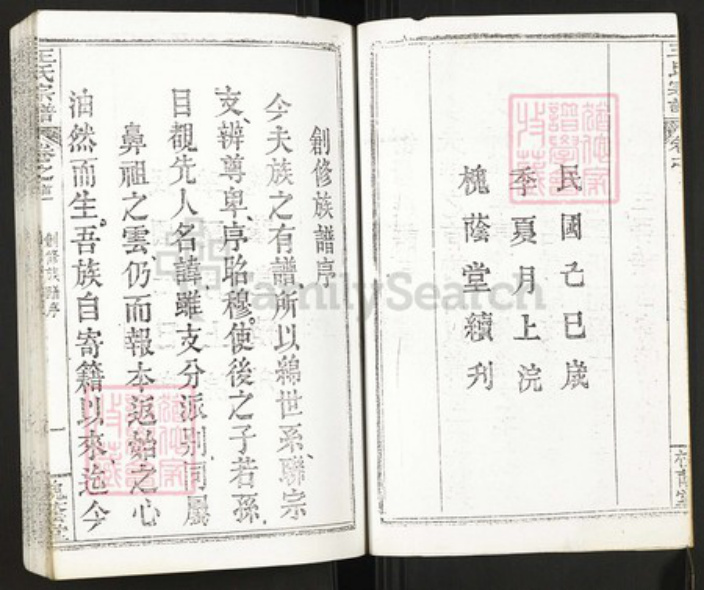 王氏宗譜
民國乙巳歲
季夏月上浣
槐蔭堂續刋
創修族譜序
今夫族之有譜、所以綿世系、聯宗
支、辨尊卑、序昭穆。使後之子若孫、
目覩先人名諱、雖支分派别、同屬
鼻祖之雲仍而報本返始之心
油然而生。吾族自寄籍以來、迄今
王氏宗譜
卷之首
創修族譜序
一
槐蔭堂
FamilySearch